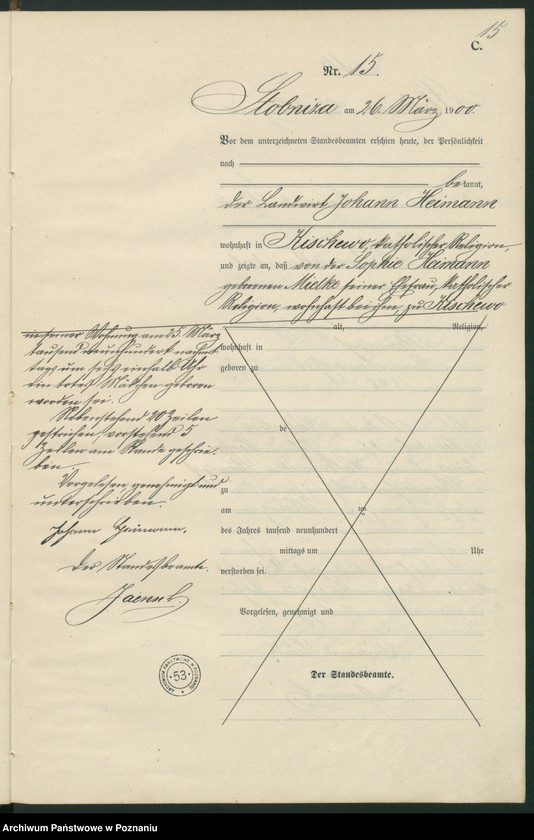 15
C.
Nr. 15.
Stobnica am 26. März 1900.
Vor dem unterzeichneten Standesbeamten erschien heute, der Persönlichkeit
nach
bekannt,
der Landwirt Johann Heimann
wohnhaft in Kischewo, katholischer Religion,
und zeigte an, daß von der Sophie Heimann
geborenen Mielke seiner Ehefrau, katholischer
Religion, wohnhaft bei ihm, zu Kischewo
alt, Religion,
in seiner Wohnung am 25. März
tausend neunhundert nachmit
tags um sechs einhalb Uhr
ein totes Mädchen geboren
worden sei.
Nebenstehend 20 Zeilen
gestrichen, vorstehend 5
Zeilen am Rande geschrie-
ben.
Vorgelesen, genehmigt und
unterschrieben.
Johann Heimann.
Der Standesbeamte.
wohnhaft in
geboren zu
de
zu
am ten
des Jahres tausend neunhundert
mittags um Uhr
verstorben sei.
Vorgelesen, genehmigt und
Der Standesbeamte.
ARCHIWUM PAŃSTWOWE W POZNANIU
53
Archiwum Państwowe w Poznaniu